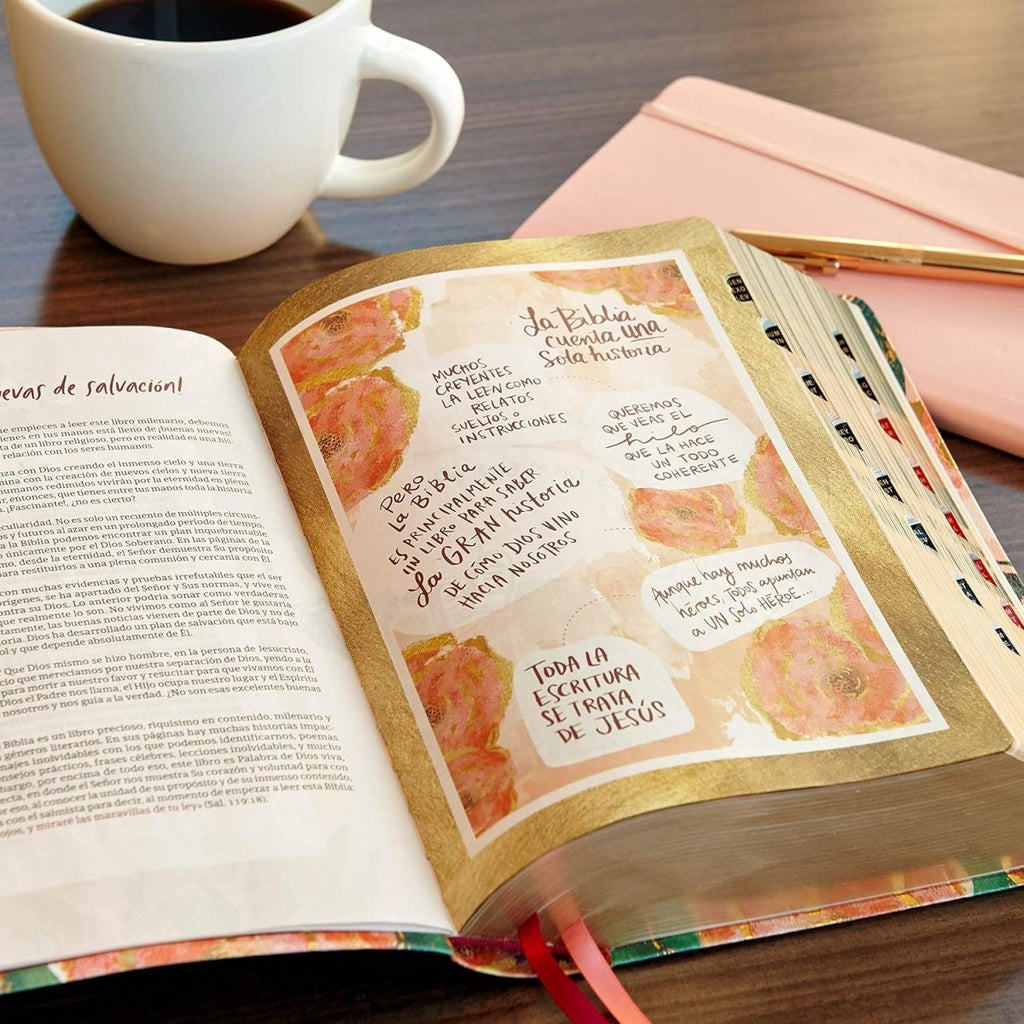 evas de salvación!
e empieces a leer este libro milenario, debemos
ienes en tus manos está lleno de buenas nuevas.
ta de un libro religioso, pero en realidad es una his-
relación con los seres humanos.
nza con Dios creando el inmenso cielo y una tierra
na con la creación de nuevos cielos y nueva tierra
humanos redimidos vivirán por la eternidad en plena
r, entonces, que tienes entre tus manos toda la historia
. ¡Fascinante!, ¿no es cierto?
eculiaridad. No es solo un recuento de múltiples circuns-
s y futuros al azar en un prolongado período de tiempo.
a la Biblia podemos encontrar un plan inquebrantable
o únicamente por el Dios Soberano. En las páginas de la
o, desde la eternidad, el Señor demuestra Su propósito
para restituirlos a una plena comunión y cercanía con Él.
con muchas evidencias y pruebas irrefutables que el ser
orígenes, se ha apartado del Señor y Sus normas, y vive en
ontra su Dios. Lo anterior podría sonar como verdaderas
que realmente lo son. No vivimos como al Señor le gustaría
tamente, las buenas noticias vienen de parte de Dios y no de
toria. Dios ha desarrollado un plan de salvación que está bajo
ol y que depende absolutamente de Él.
? Que Dios mismo se hizo hombre, en la persona de Jesucristo,
cio que merecíamos por nuestra separación de Dios, yendo a la
para morir a nuestro favor y resucitar para que vivamos con Él.
Dios el Padre nos llama, el Hijo ocupa nuestro lugar y el Espíritu
nosotros y nos guía a la verdad. ¿No son esas excelentes buenas
Biblia es un libro precioso, riquísimo en contenido, milenario y
géneros literarios. En sus páginas hay muchas historias impac-
najes inolvidables con los que podemos identificarnos, poemas
nsejos prácticos, frases célebres, lecciones inolvidables, y mucho
bargo, por encima de todo eso, este libro es Palabra de Dios viva,
ecta, en donde el Señor nos muestra Su corazón y voluntad para con
or eso, al conocer la unidad de su propósito y de su inmenso contenido,
s con el salmista para decir, al momento de empezar a leer esta Biblia:
ojos, y miraré las maravillas de tu ley» (Sal. 119:18).
La Biblia
cuenta una
sola historia
MUCHOS
CREYENTES
LA LEEN COMO
RELATOS
SUELTOS o
INSTRUCCIONES
QUEREMOS
QUE VEAS EL
hilo
QUE LA HACE
UN TODO
COHERENTE
PERO
LA BIBLIA
ES PRINCIPALMENTE
UN LIBRO PARA SABER
La GRAN historia
DE CÓMO DIOS VINO
HACIA NOSOTROS
Aunque hay muchos
héroes, TODOS apuntan
a UN solo HÉROE...
TODA LA
ESCRITURA
SE TRATA
DE JESÚS
GEN
EXO
LEV